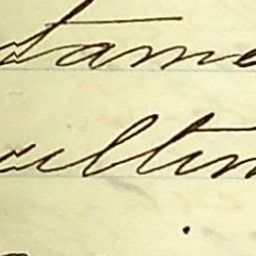 tame
ultim